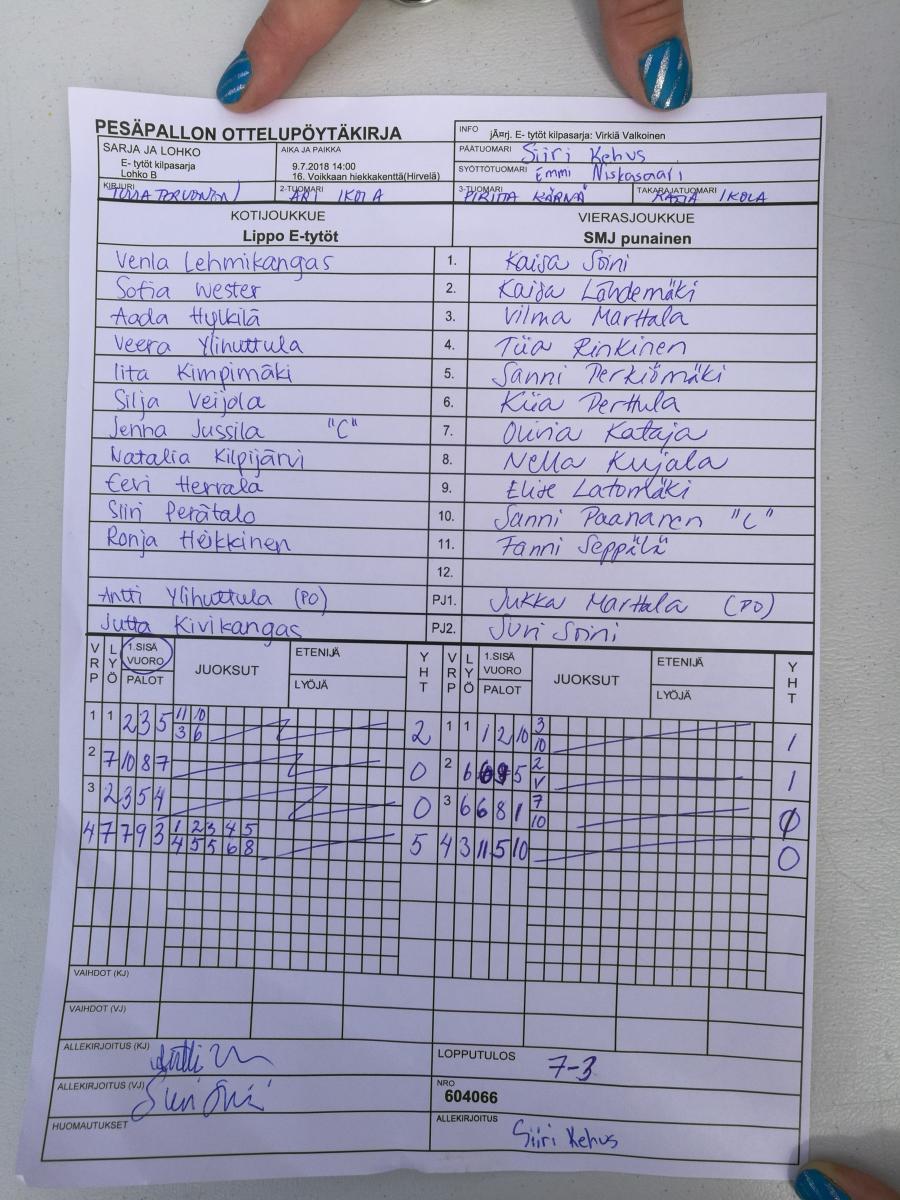 PESÄPALLON OTTELUPÖYTÄKIRJA
INFO jÃ¤rj. E- tytöt kilpasarja: Virkiä Valkoinen
SARJA JA LOHKO
E- tytöt kilpasarja
Lohko B
AIKA JA PAIKKA
9.7.2018 14:00
16. Voikkaan hiekkakenttä(Hirvelä)
PÄÄTUOMARI Siiri Kehus
SYÖTTÖTUOMARI Emmi Niskasaari
KIRJURI
2-TUOMARI ARI IKOLA
3-TUOMARI PIRITTA KÄRNÄ
TAKARAJATUOMARI KATJA IKOLA
KOTIJOUKKUE VIERASJOUKKUE
Lippo E-tytöt SMJ punainen
Venla Lehmikangas 1. Kaisa Soini
Sofia Wester 2. Kaisa Lähdemäki
Aada Hylkilä 3. Vilma Marttala
Veera Ylihuttula 4. Tiia Rinkinen
Iita Kimpimäki 5. Sanni Perkiömäki
Silja Veijola 6. Kiia Perttula
Jenna Jussila "C" 7. Olivia Kataja
Natalia Kilpijärvi 8. Nella Kujala
Eevi Herrala 9. Elise Latomäki
Siiri Perätalo 10. Sanni Paananen "C"
Ronja Heikkinen 11. Fanni Seppälä
12.
Antti Ylihuttula (PO) PJ1. Jukka Marttala (PO)
Jutta Kivikangas PJ2. Suvi Soini
VRP LYÖ 1.SISÄ VUORO PALOT JUOKSUT ETENIJÄ LYÖJÄ YHT VRP LYÖ 1.SISÄ VUORO PALOT JUOKSUT ETENIJÄ LYÖJÄ YHT
1 1 2 3 5 11 10 2 1 1 1 2 10 3 1
3 6 10
2 7 10 8 7 0 2 6 5 2 1
V
3 2 3 5 4 0 3 6 6 8 1 7 0
10
4 7 7 9 3 1 2 3 4 5 5 4 3 11 5 10 0
4 5 5 6 8
VAIHDOT (KJ)
VAIHDOT (VJ)
ALLEKIRJOITUS (KJ)
LOPPUTULOS 7-3
ALLEKIRJOITUS (VJ) Suvi Soini
NRO
604066
HUOMAUTUKSET
ALLEKIRJOITUS
Siiri Kehus